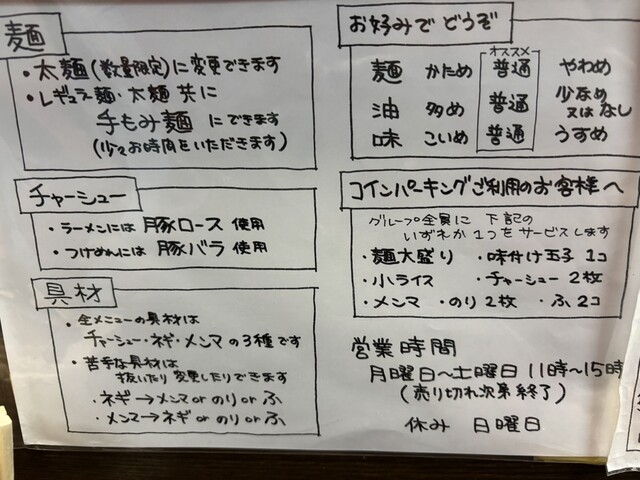 麺
・太麺(数量限定)に変更できます
・レギュラー麺・太麺 共に
手もみ麺 にできます
(少々お時間をいただきます)
チャーシュー
・ラーメンには 豚ロース 使用
・つけめんには 豚バラ 使用
具材
・全メニューの具材は
チャーシュー・ネギ・メンマ の3種です
・苦手な具材は
抜いたり 変更したりできます
・ネギ→メンマ or のり or ふ
・メンマ→ネギ or のり or ふ
お好みで どうぞ
オススメ
麺 かため 普通 やわめ
油 多め 普通 少なめ 又は なし
味 こいめ 普通 うすめ
コインパーキングご利用のお客様へ
グループ全員に 下記の
いずれか 1つをサービスします
・麺大盛り ・味付け玉子 1コ
・小ライス ・チャーシュー 2枚
・メンマ ・のり 2枚 ・ふ 2コ
営業時間
月曜日〜土曜日 11時〜15時
(売り切れ次第終了)
休み 日曜日